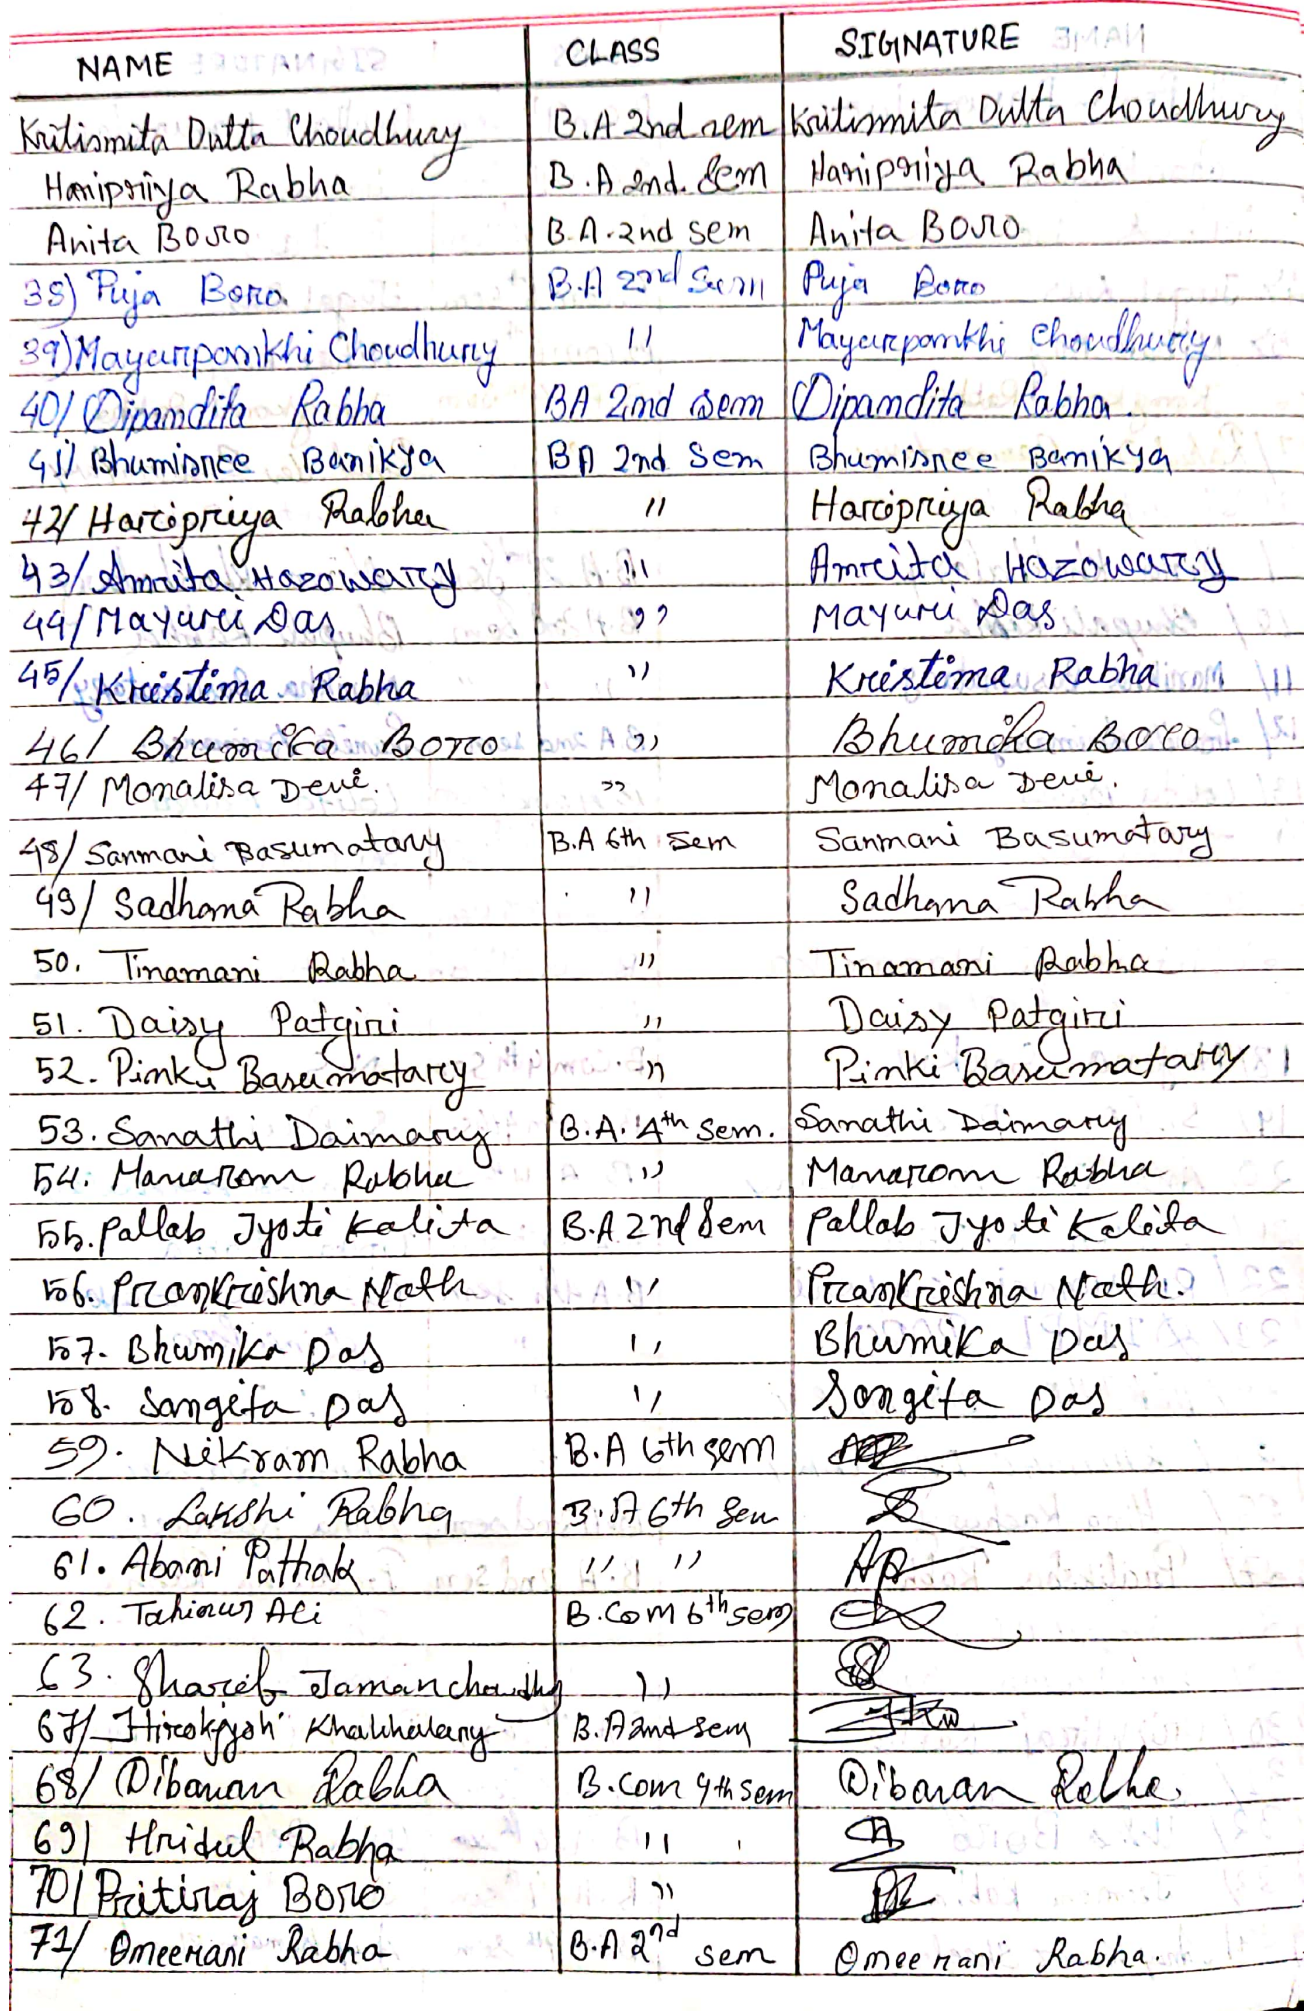 NAME CLASS SIGNATURE
Kritismita Dutta Choudhury B.A 2nd sem Kritismita Dutta Choudhury
Haripriya Rabha B.A 2nd. Sem Haripriya Rabha
Anita Boro B.A. 2nd sem Anita Boro
38) Puja Boro. B.A 2nd Sem Puja Boro
39) Mayurpankhi Choudhury " Mayurpankhi Choudhury
40/ Dipamdita Rabha BA 2nd sem Dipamdita Rabha.
41/ Bhumisree Banikya BA 2nd Sem Bhumisree Banikya
42/ Haripriya Rabha " Haripriya Rabha
43/ Amrita Hazowary " Amrita Hazowary
44/ Mayuri Das " Mayuri Das
45/ Kristima Rabha " Kristima Rabha
46/ Bhumika Boro " Bhumika Boro
47/ Monalisa Devi. " Monalisa Devi.
48/ Sanmani Basumatary B.A 6th Sem Sanmani Basumatary
49/ Sadhana Rabha " Sadhana Rabha
50. Tinamani Rabha " Tinamani Rabha
51. Daisy Patgiri " Daisy Patgiri
52. Pinki Basumatary " Pinki Basumatary
53. Sanathi Daimary B.A. 4th Sem. Sanathi Daimary
54. Manarom Rabha " Manarom Rabha
55. Pallab Jyoti Kalita B.A 2nd Sem Pallab Jyoti Kalita
56. Prankrishna Nath " Prankrishna Nath.
57. Bhumika Das " Bhumika Das
58. Sangita Das " Sangita Das
59. Nikram Rabha B.A 6th sem
60. Lakshi Rabha B.A 6th Sem
61. Abani Pathak " " AP
62. Ali B.Com 6th sem
63. Jaman "
67/ Khakhalary B.A 2nd sem
68/ Dibanan Rabha B.Com 4th sem Dibanan Rabha.
69/ Hridul Rabha "
70/ Pritiraj Boro "
71/ Omeerani Rabha B.A 2nd sem Omeerani Rabha.